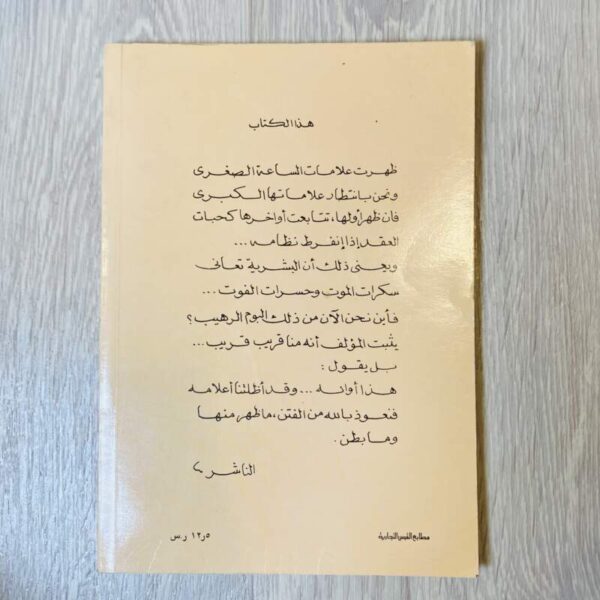 هذا الكتاب
ظهرت علامات الساعة الصغرى
ونحن بانتظار علاماتها الكبرى
فان ظهر أولها، تتابعت أواخرها كحبات
العقد إذا إنفرط نظامه ...
ويعنى ذلك أن البشرية تعانى
سكرات الموت وحسرات الفوت ...
فأين نحن الآن من ذلك اليوم الرهيب؟
يثبت المؤلف أنه منا قريب قريب ...
بل يقول :
هذا أوانه ... وقد أظلتنا أعلامه
فنعوذ بالله من الفتن، ما ظهر منها
وما بطن .
الناشر
مطابع القبس التجارية
١٢٫٥ ر.س